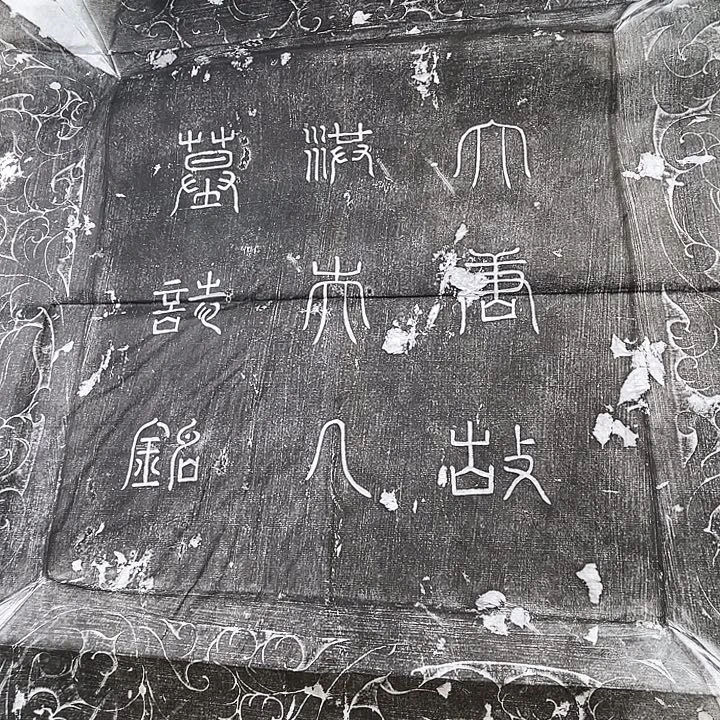 大唐故
夫人
墓誌銘